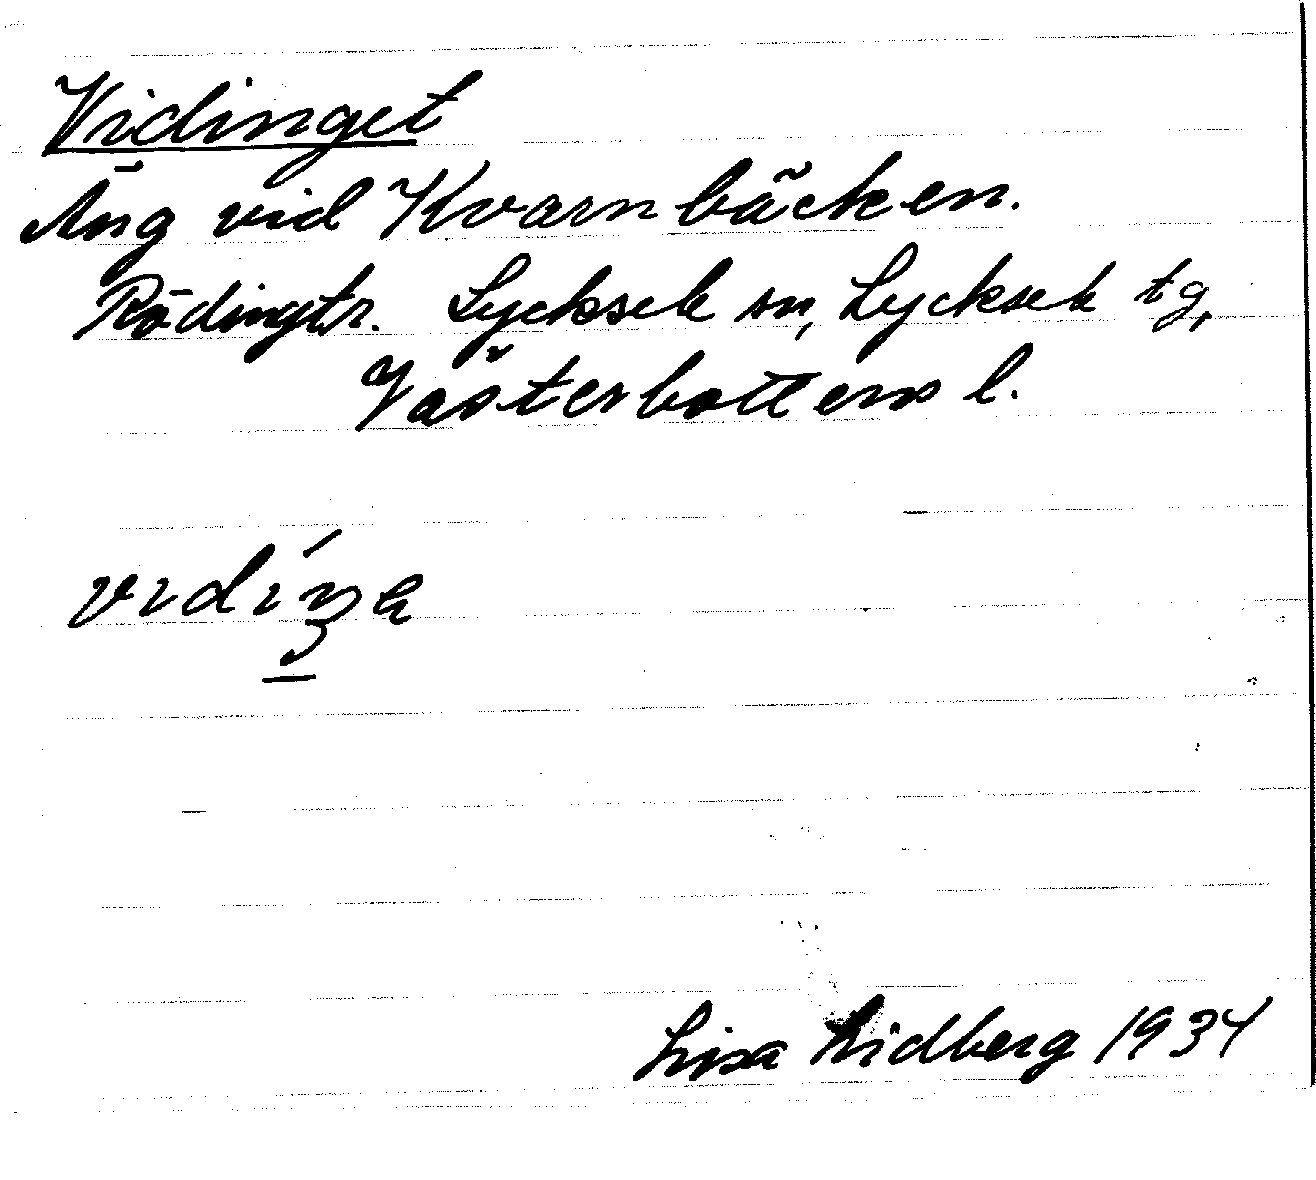 Vidinget
Äng vid Kvarnbäcken.
Rödingtr. Lycksele sn, Lycksele tg,
Västerbottens l.
Lisa Lidberg 1934